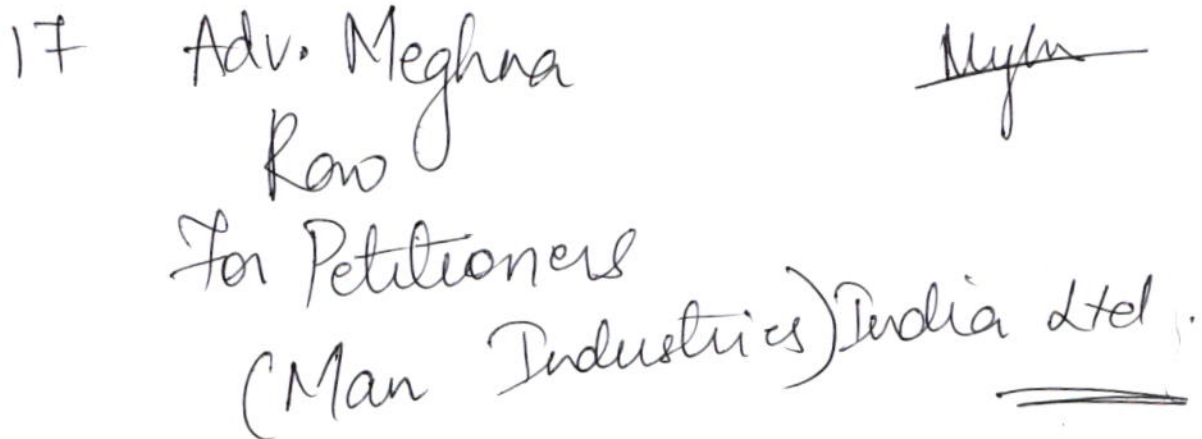 17 Adv. Meghna
Rao
For Petitioners
(Man Industries) India Ltd.